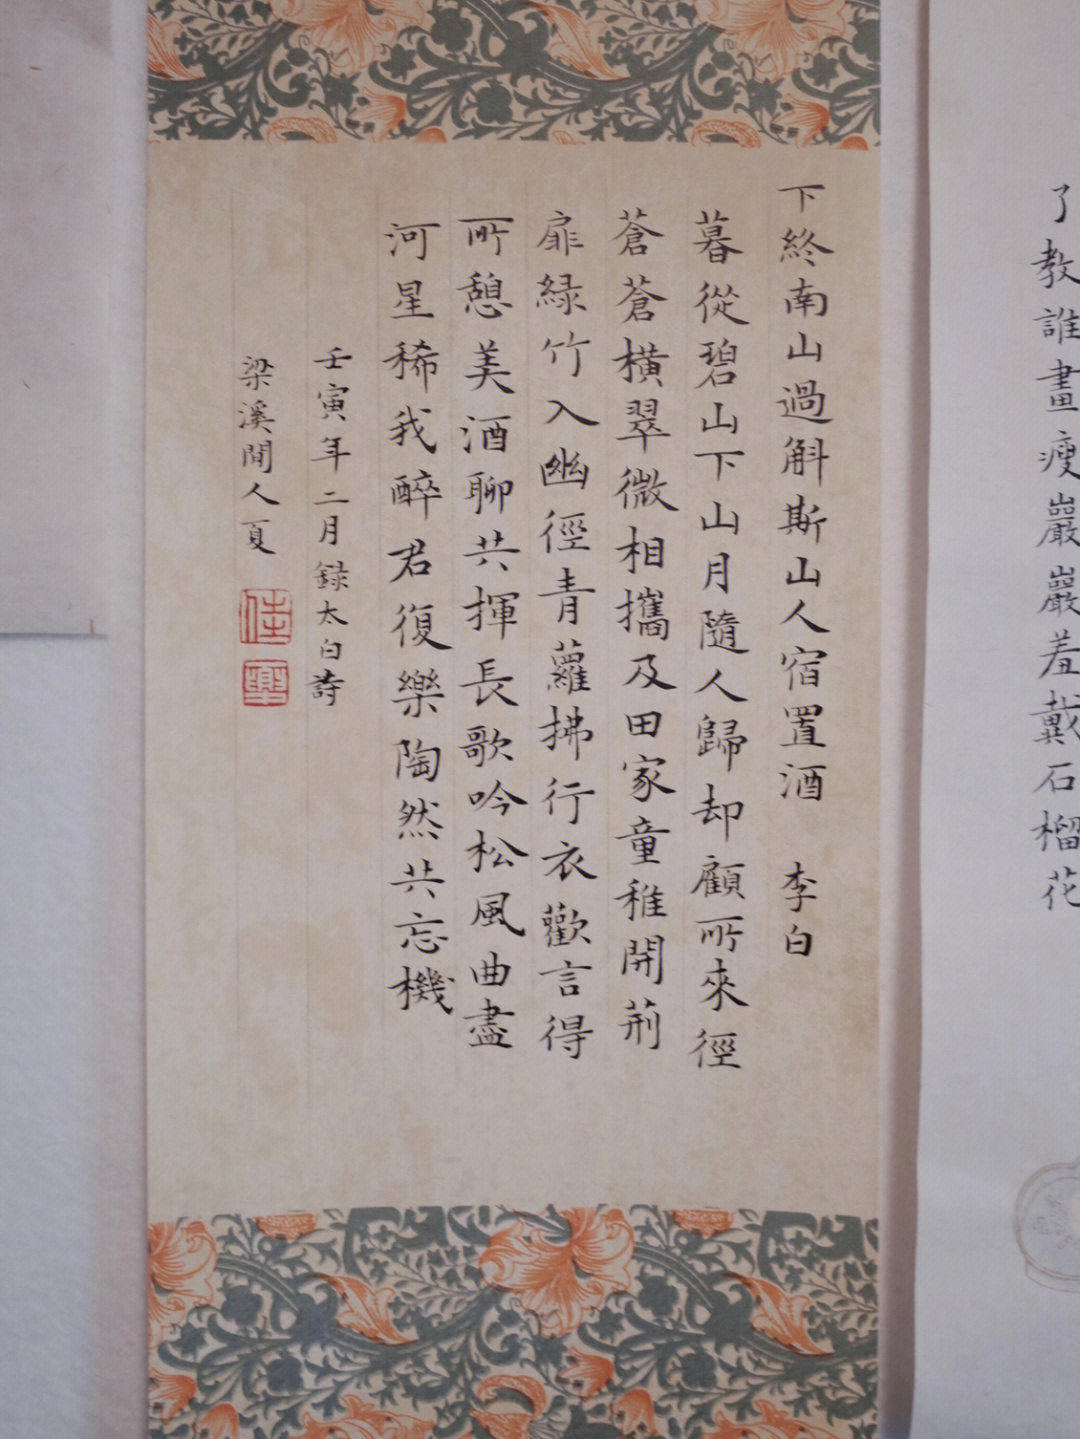 了教誰畫瘦巖巖羞戴石榴花
下終南山過斛斯山人宿置酒 李白
暮從碧山下山月隨人歸却顧所來徑
蒼蒼橫翠微相攜及田家童稚開荊
扉緑竹入幽徑青蘿拂行衣歡言得
所憩美酒聊共揮長歌吟松風曲盡
河星稀我醉君復樂陶然共忘機
壬寅年二月録太白詩
梁溪閒人夏